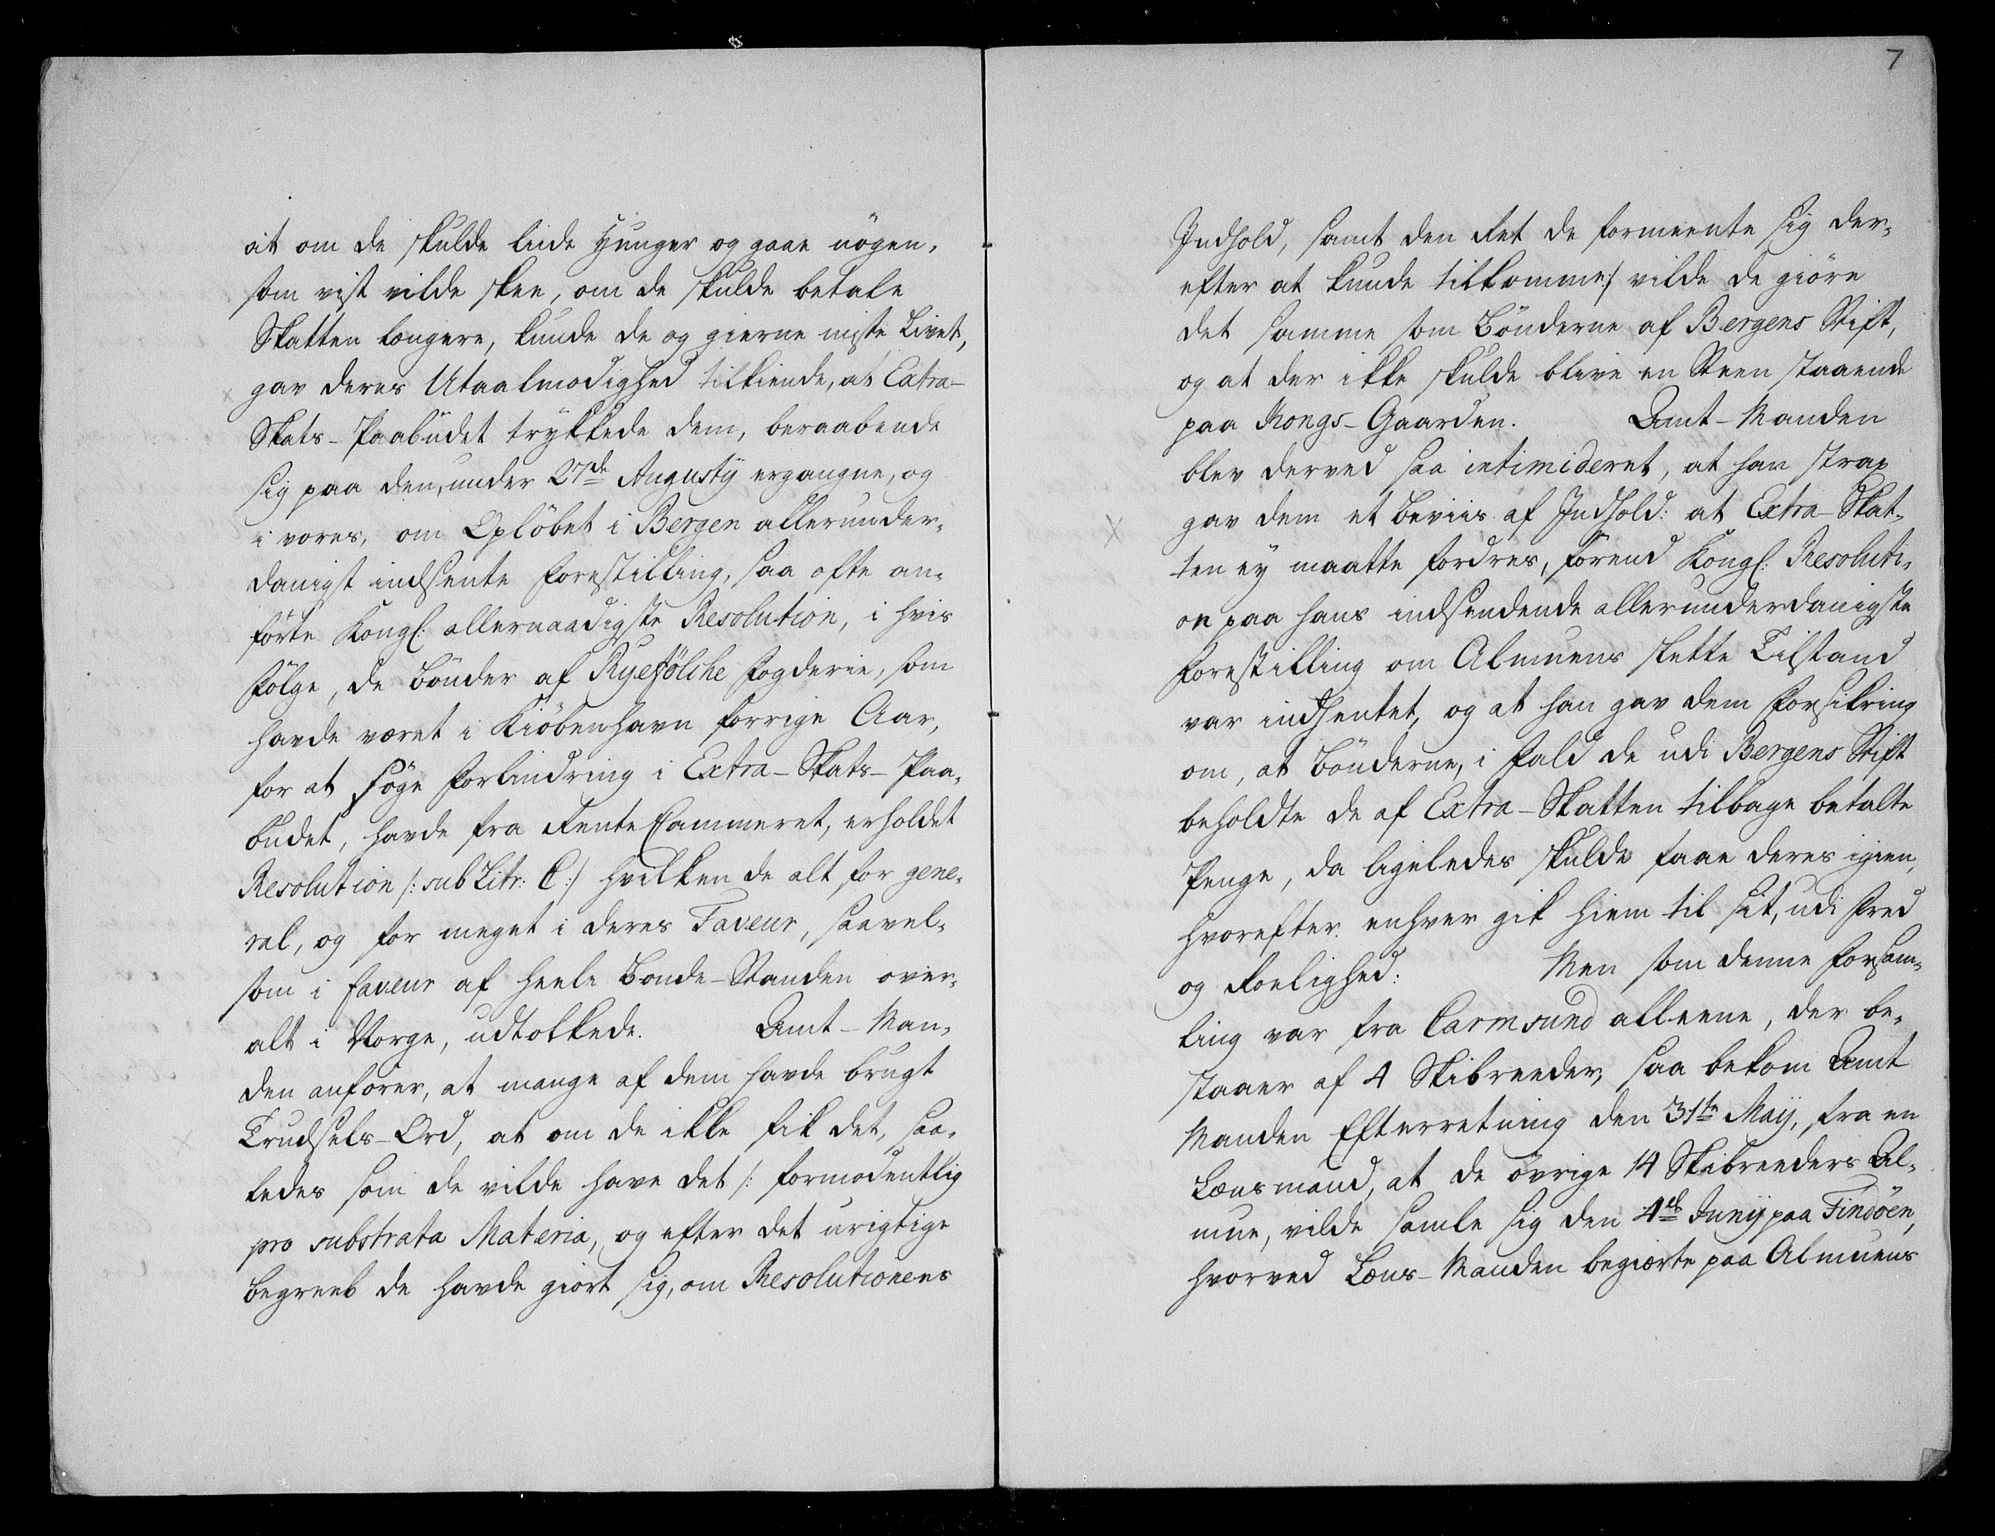 at om de skulde liide Hunger og gaae nögen,
som vist vilde skee, om de skulde betale
Skatten længere, kunde de og gierne miste Livet,
gav deres Utaalmodighed tilkiende, at Extra-
Skats-Paabudet trykkede dem, beraabende
sig paa den, under 27de Augustÿ ergangne, og
i vores, om Oplöbet i Bergen allerunder-
danigst indsente Forestilling, saa ofte an-
förte Kongl: allernaadigste Resolution, i hvis
Fölge, de Bönder af Ryefölche Fogderie, som
havde været i Kiöbenhavn forrige Aar,
for at söge Forlindring i Extra-Skats-Paa-
budet, havde fra Rente Cammeret, erholdet
Resolution /: sub Litr: C :/ hvilken de alt for gene-
ral, og for meget i deres Faveur, saavel-
som i faveur af heele Bonde-Standen over-
alt i Norge, udtolkede. Amt-Man-
den anförer, at mange af dem havde brugt
Trudsels-Ord, at om de ikke fik det, saa-
ledes som de vilde have det /: formodentlig
pro substrata Materia, og efter det urigtige
begreeb de havde giort sig, om Resolutionens
7
Indhold, samt den Ret de formeente sig der-
efter at kunde tilkomme :/ vilde de giöre
det samme som Bönderne af Bergens Stift,
og at der ikke skulde blive en Steen staaende
paa Kongs-Gaarden. Amt-Manden
blev derved saa intimideret, at han strax
gav dem et Beviis af Indhold: at Extra-Skat-
ten ey maatte fordres, förend Kongl: Resoluti-
on paa hans indsendende allerunderdanigste
Forestilling om Almuens slette Tilstand
var indhentet, og at han gav dem Forsikring
om, at Bönderne, i Fald de udi Bergens Stift
beholdte de af Extra-Skatten tilbage betalte
Penge, da ligeledes skulde faae deres igien,
hvorefter enhver gik hiem til sit, udi Fred
og Roelighed: Men som denne Forsam-
ling var fra Carmsund alleene, der be-
staaer af 4 Skibreeder, saa bekom Amt
Manden Efterretning den 31te Maÿ, fra en
Lænsmand, at de övrige 14 Skibreeders Al-
mue, vilde samle sig den 4de Junÿ paa Findöen,
hvorved Læns-Manden begiærte paa Almuens